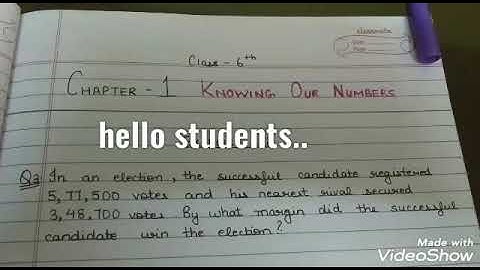 classmate
Date
Page
Class - 6th
CHAPTER - 1 KNOWING OUR NUMBERS
hello students..
Q3 In an election, the successful candidate registered
5,77,500 votes and his nearest rival secured
3,48,700 votes By what margin did the successful
candidate win the election?
Made with
VideoShow